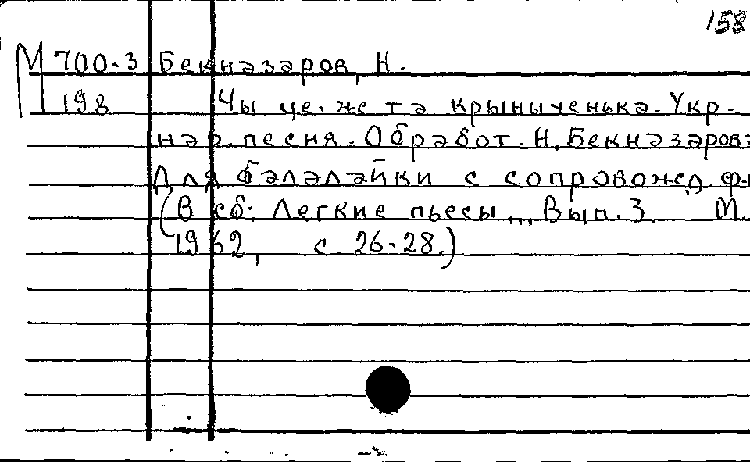 158
М 700-3 Бекназаров, Н.
198 Чы це же та крыныченька. Укр.
нар. песня. Обработ. Н. Бекназарова
Для балалайки с сопровожд. ф-
(В сб: Легкие пьесы... Вып. 3. М.
1962, с. 26-28.)